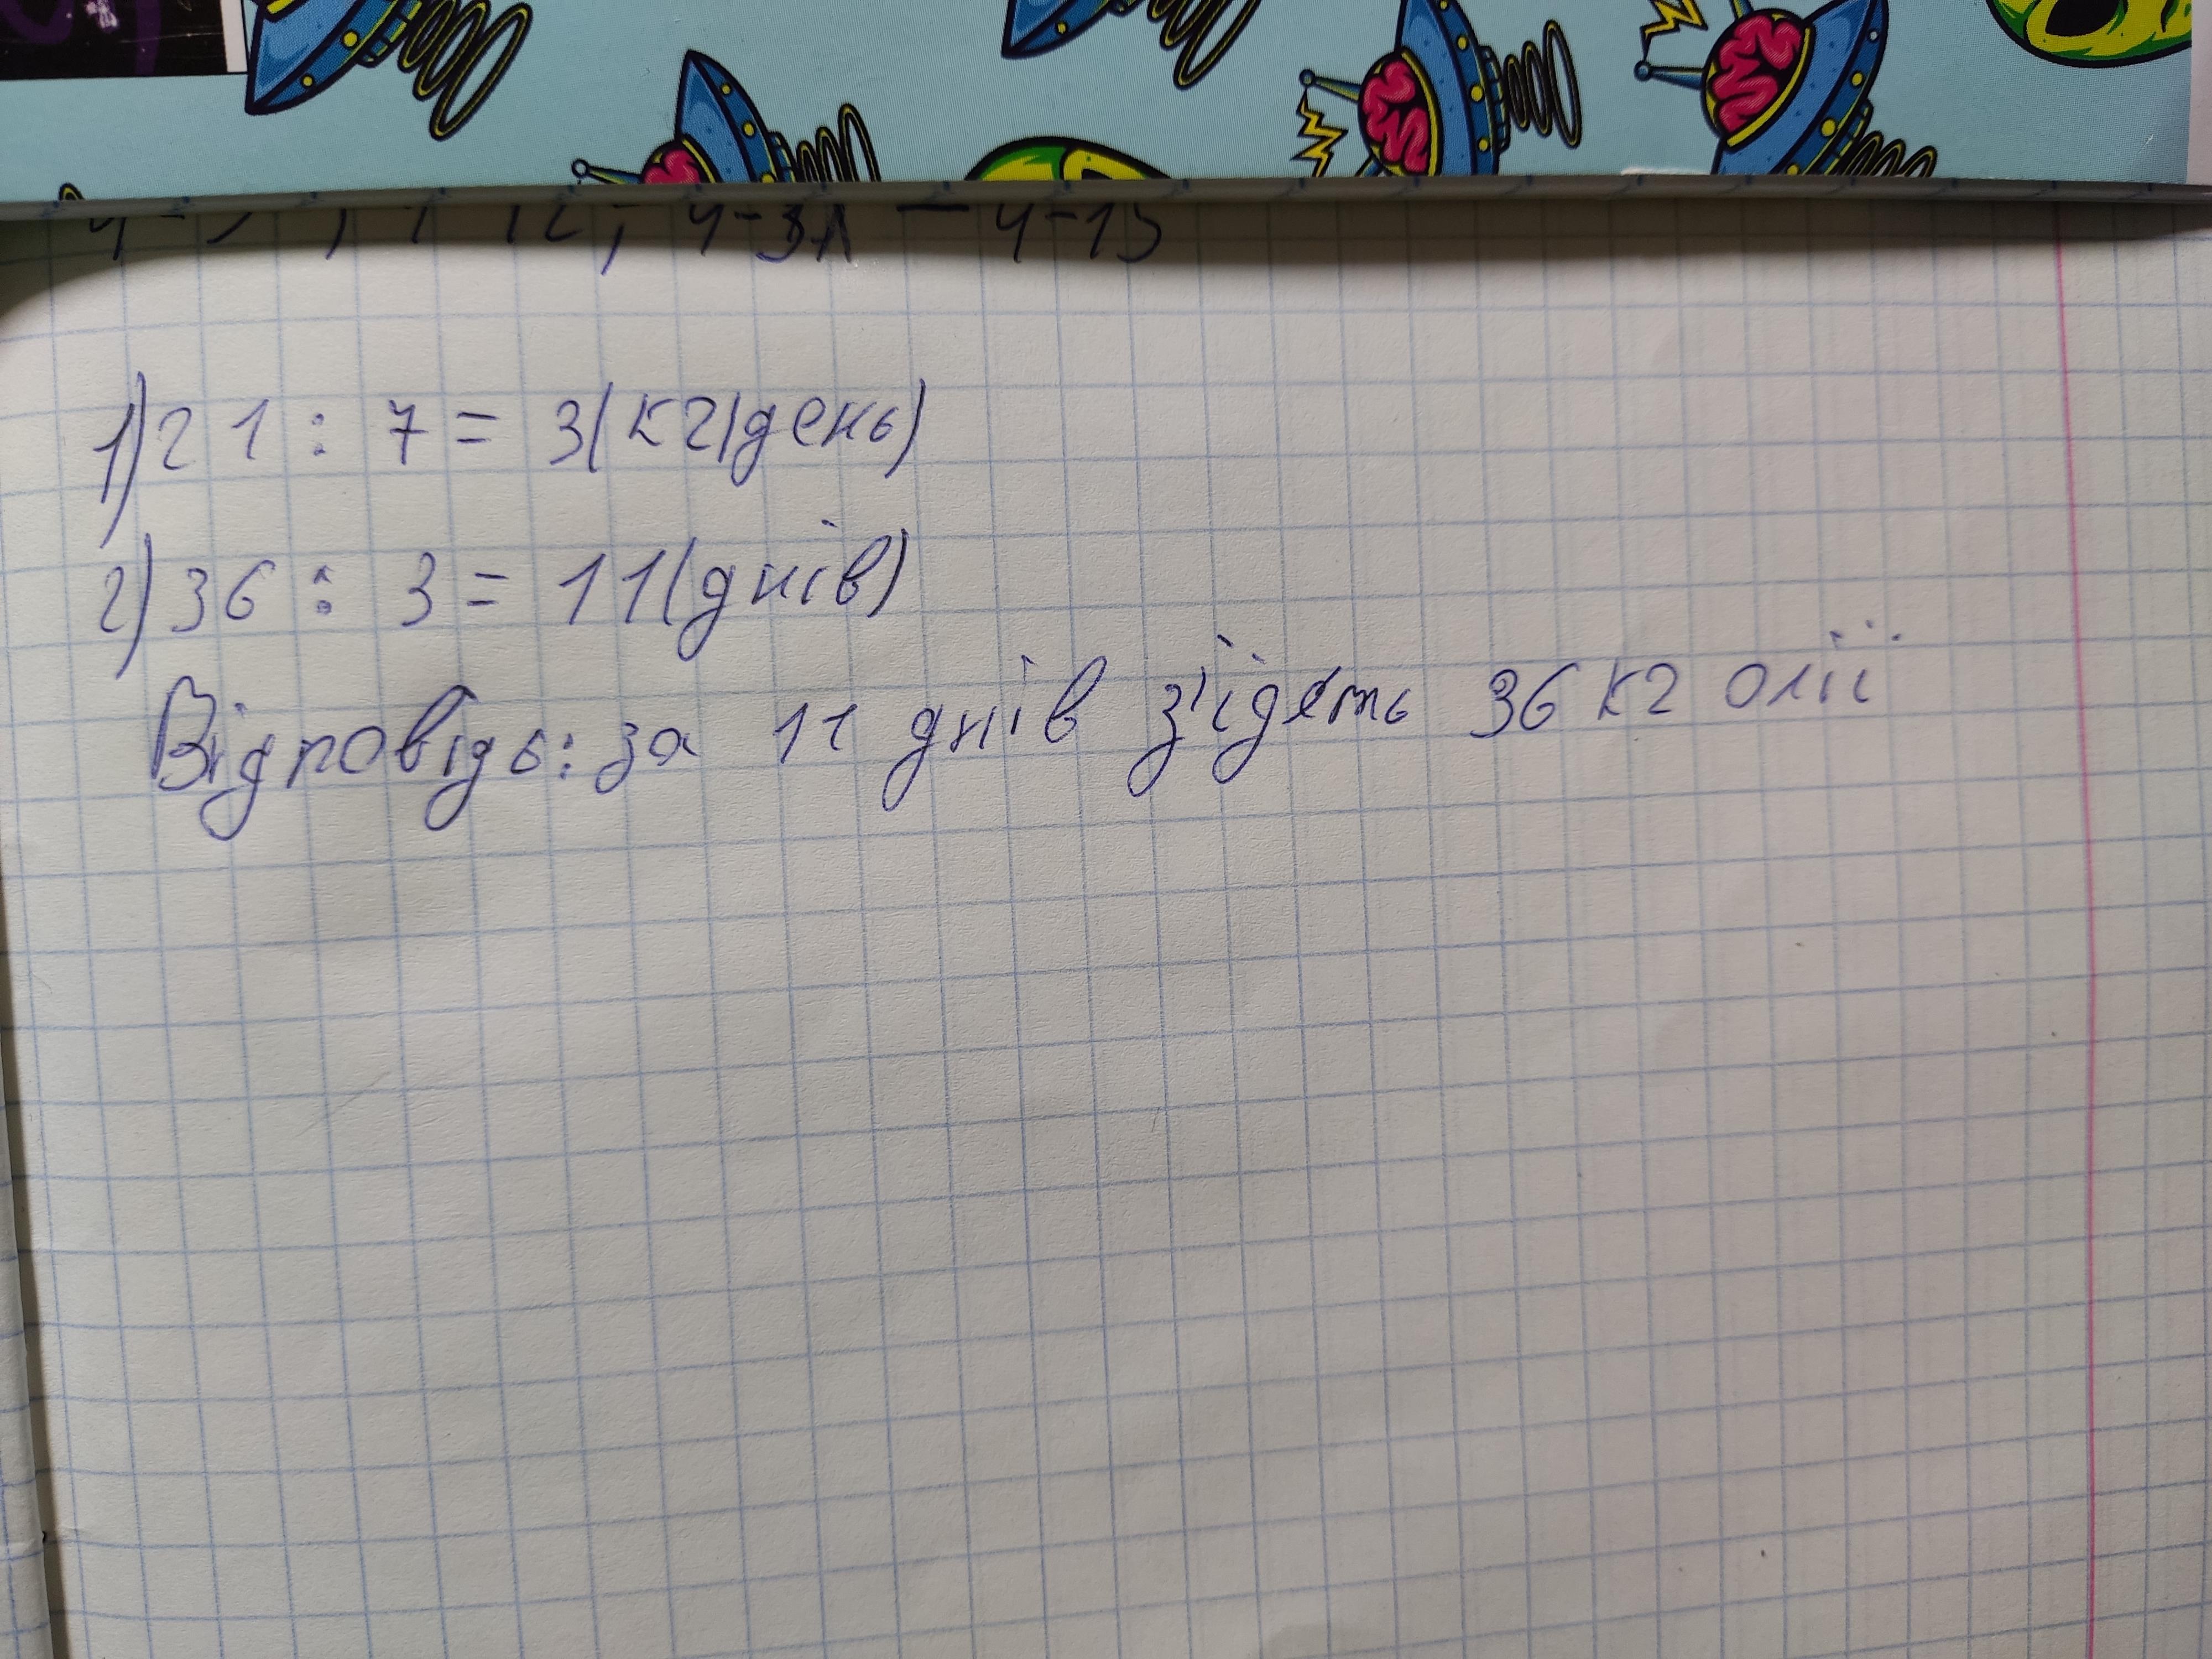 4-3x = 4-15
1) 21 : 7 = 3(кг|день)
2) 36 : 3 = 11(днів)
Відповідь: за 11 днів з'їдять 36 кг олії